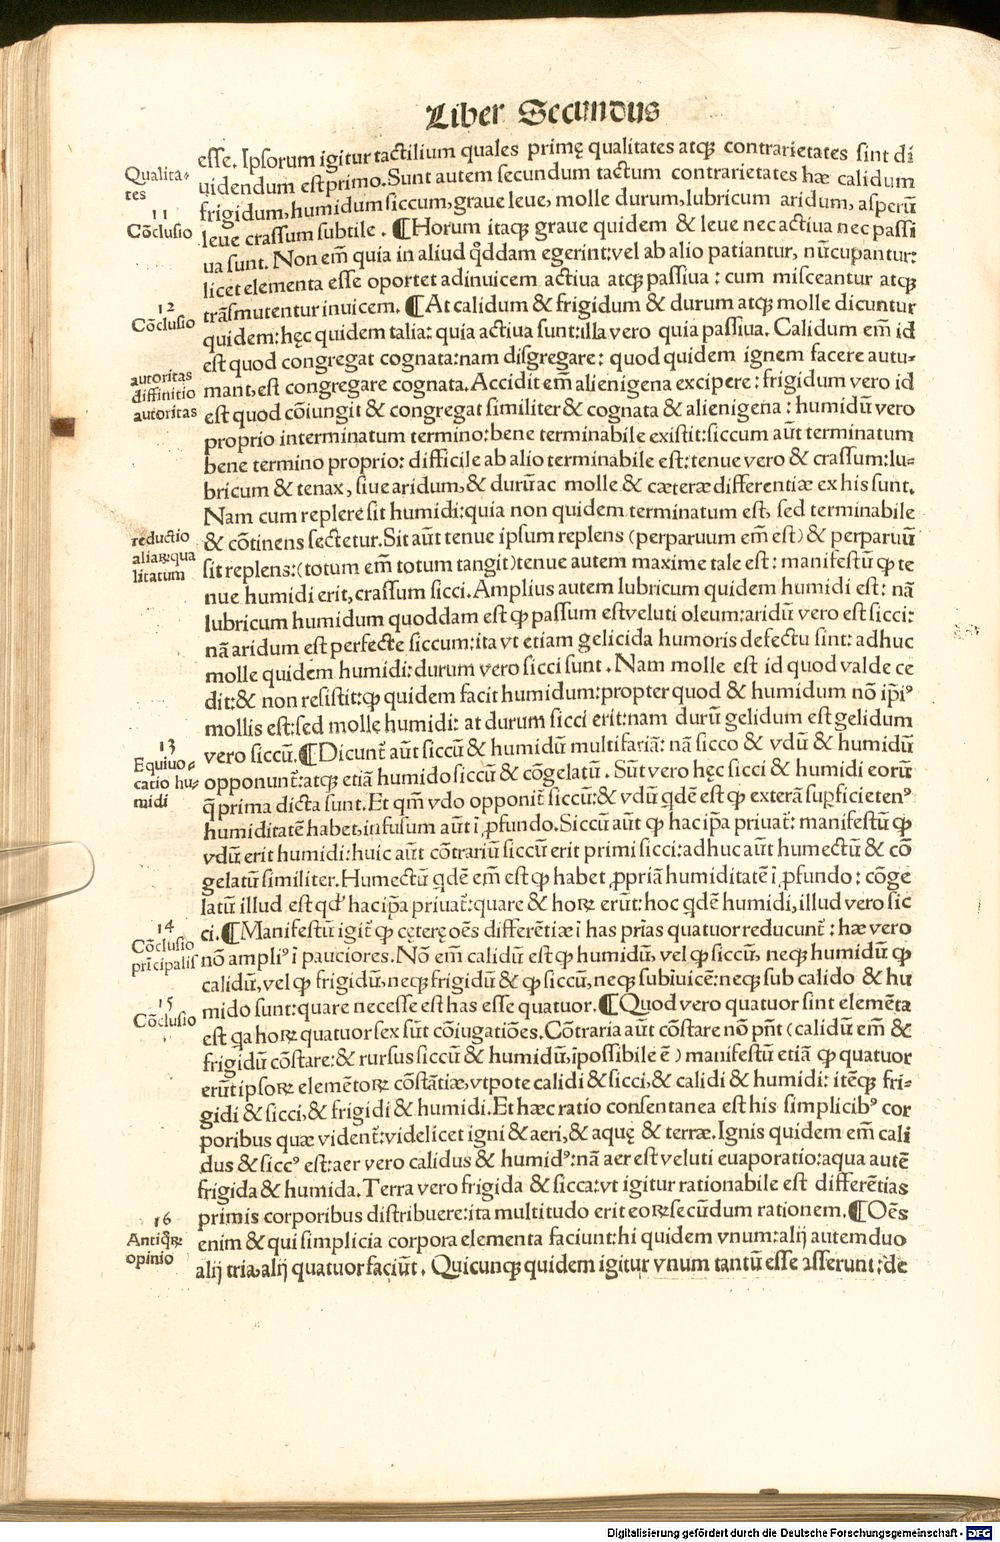 Liber Secundus
eſſe. Ipſorum igitur tactilium quales primę qualitates atqꝫ contrarietates ſint di
Qualita⸗
tes
uidendum eſt primo. Sunt autem ſecundum tactum contrarietates hæ calidum
frigidum, humidum ſiccum, graue leue, molle durum, lubricum aridum, aſperū
11
Cōcluſio
leue craſſum ſubtile. ¶Horum itaqꝫ graue quidem & leue nec actiua nec paſſi
ua ſunt. Non em̄ quia in aliud q̄ddam egerint: vel ab alio patiantur, nūcupantur:
licet elementa eſſe oportet adinuicem actiua atqꝫ paſſiua: cum miſceantur atqꝫ
12
Cōcluſio
trāſmutentur inuicem. ¶At calidum & frigidum & durum atqꝫ molle dicuntur
quidem: hęc quidem talia: quia actiua ſunt: illa vero quia paſſiua. Calidum em̄ id
eſt quod congregat cognata: nam diſgregare: quod quidem ignem facere autu⸗
autoritas
diffinitio
autoritas
mant, eſt congregare cognata. Accidit em̄ alienigena excipere: frigidum vero id
eſt quod cōiungit & congregat ſimiliter & cognata & alienigena: humidū vero
proprio interminatum termino: bene terminabile exiſtit: ſiccum aūt terminatum
bene termino proprio: difficile ab alio terminabile eſt: tenue vero & craſſum: lu⸗
bricum & tenax, ſiue aridum, & durū ac molle & cæteræ differentiæ ex his ſunt.
Nam cum replere ſit humidi: quia non quidem terminatum eſt, ſed terminabile
reductio
aliaꝝ qua
litatum
& cōtinens ſectetur. Sit aūt tenue ipſum replens (perparuum em̄ eſt) & perparuū
ſit replens: (totum em̄ totum tangit) tenue autem maxime tale eſt: manifeſtū ꝙ te
nue humidi erit, craſſum ſicci. Amplius autem lubricum quidem humidi eſt: nā
lubricum humidum quoddam eſt ꝙ paſſum eſt veluti oleum: aridū vero eſt ſicci:
nā aridum eſt perfecte ſiccum: ita vt etiam gelicida humoris defectu ſint: adhuc
molle quidem humidi: durum vero ſicci ſunt. Nam molle eſt id quod valde ce
dit: & non reſiſtit: ꝙ quidem facit humidum: propter quod & humidum nō ip̄iꝰ
mollis eſt: ſed molle humidi: at durum ſicci erit: nam durū gelidum eſt gelidum
13
Equiuo⸗
catio hu⸗
midi
vero ſiccū. ¶Dicunt̄ aūt ſiccū & humidū multifariā: nā ſicco & vdū & humidū
opponunt̄: atqꝫ etiā humido ſiccū & cōgelatū. Sūt vero hęc ſicci & humidi eorū
q̄ prima dicta ſunt. Et qm̄ vdo opponit̄ ſiccū: & vdū qdē eſt ꝙ exterā ſuꝑficietenꝰ
humiditatē habet, infuſum aūt ī ꝓfundo. Siccū aūt ꝙ hac ip̄a priuat̄: manifeſtū ꝙ
vdū erit humidi: huic aūt cōtrariū ſiccū erit primi ſicci: adhuc aūt humectū & cō
gelatū ſimiliter. Humectū qdē em̄ eſt ꝙ habet ꝓpriā humiditatē ī ꝓfundo: cōge
latū illud eſt qd’ hac ip̄a priuat̄: quare & hoꝝ erūt: hoc qdē humidi, illud vero ſic
14
Cōcluſio
prīcipaliſ
ci. ¶Manifeſtū igit̄ ꝙ cęterę oēs differētiæ ī has prīas quatuor reducunt̄: hæ vero
nō ampliꝰ ī pauciores. Nō em̄ calidū eſt ꝙ humidū, vel ꝙ ſiccū, neqꝫ humidū ꝙ
calidū, vel ꝙ frigidū, neqꝫ frigidū & ꝙ ſiccū, neqꝫ ſubīuicē: neqꝫ ſub calido & hu
15
Cōcluſio
mido ſunt: quare neceſſe eſt has eſſe quatuor. ¶Quod vero quatuor ſint elemēta
eſt qa hoꝝ quatuor ſex ſūt cōiugatiōes. Cōtraria aūt cōſtare nō pn̄t (calidū em̄ &
frigidū cōſtare: & rurſus ſiccū & humidū, īpoſſibile ē) manifeſtū etiā ꝙ quatuor
erūt ipſoꝝ elemētoꝝ cōſtātiæ, vtpote calidi & ſicci, & calidi & humidi: itēqꝫ fri⸗
gidi & ſicci, & frigidi & humidi. Et hæc ratio conſentanea eſt his ſimplicibꝰ cor
poribus quæ vident̄: videlicet igni & aeri, & aquę & terræ. Ignis quidem em̄ cali
dus & ſiccꝰ eſt: aer vero calidus & humidꝰ: nā aer eſt veluti euaporatio: aqua autē
frigida & humida. Terra vero frigida & ſicca: vt igitur rationabile eſt differētias
16
Antiqͥꝝ
opinio
primis corporibus diſtribuere: ita multitudo erit eoꝝ ſecūdum rationem. ¶Oēs
enim & qui ſimplicia corpora elementa faciunt: hi quidem vnum: alij autem duo
alij tria, alij quatuor faciūt. Quicunqꝫ quidem igitur vnum tantū eſſe aſſerunt: de
Digitalisierung gefördert durch die Deutsche Forschungsgemeinschaft - DFG